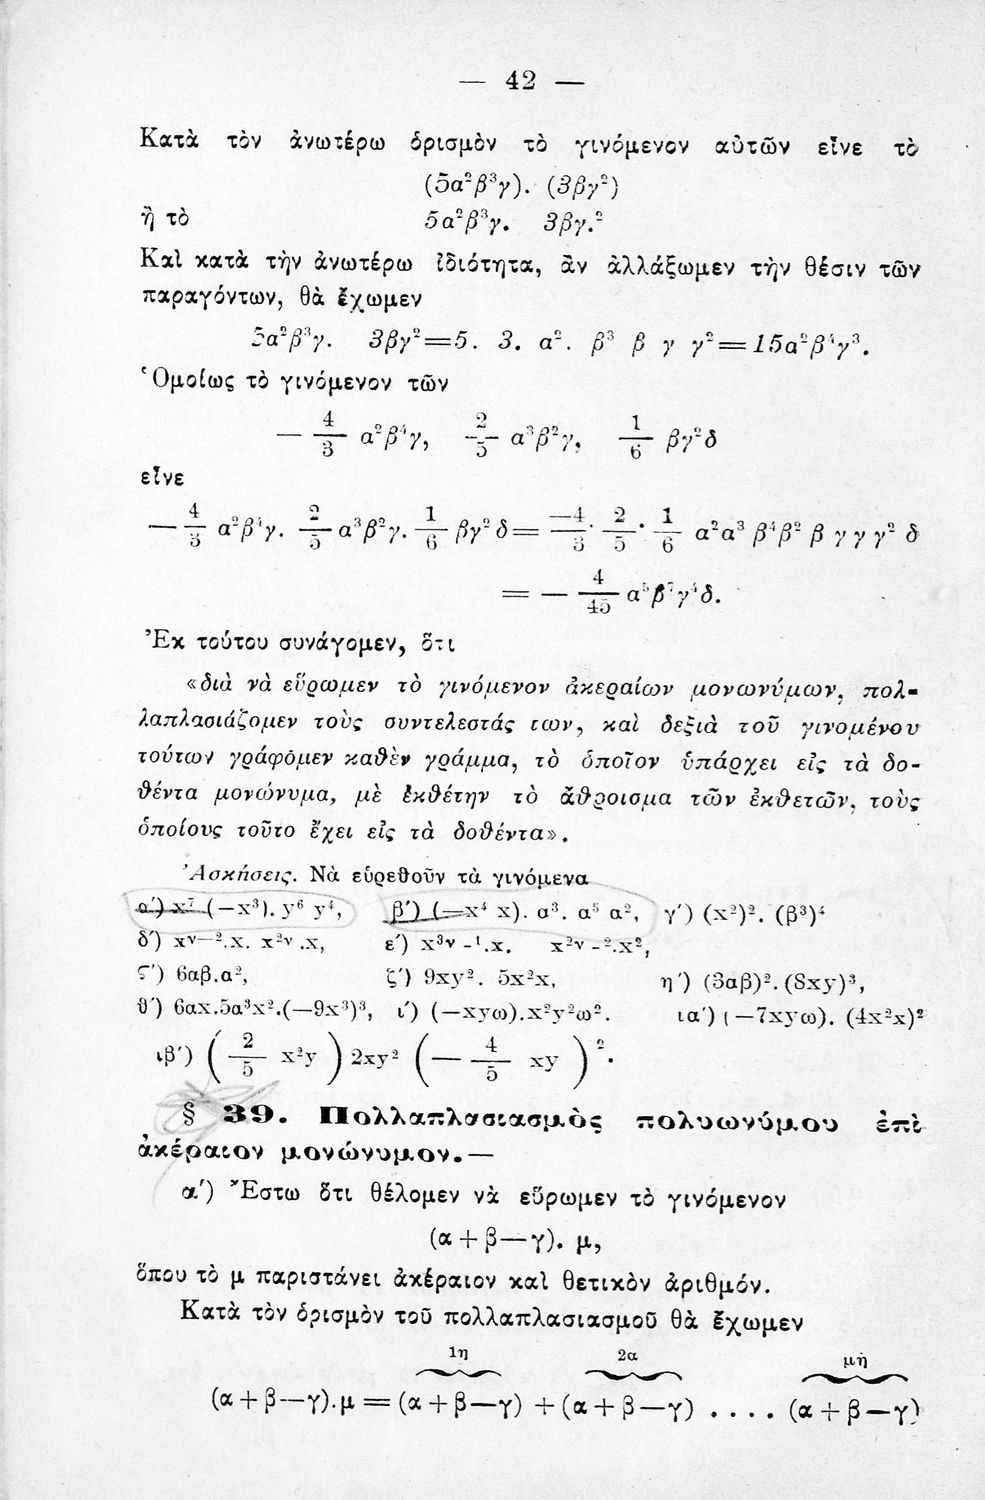 — 42 —
Κατὰ τὸν ἀνωτέρω ὁρισμὸν τὸ γινόμενον αὐτῶν εἶνε τὸ
(5α²β³γ). (3βγ²)
ἢ τὸ 5α²β³γ. 3βγ.²
Καὶ κατὰ τὴν ἀνωτέρω ἰδιότητα, ἂν ἀλλάξωμεν τὴν θέσιν τῶν
παραγόντων, θὰ ἔχωμεν
5α²β³γ. 3βγ²=5. 3. α². β³ β γ γ²=15α²β⁴γ³.
Ὁμοίως τὸ γινόμενον τῶν
— 4/3 α²β⁴γ, 2/5 α³β²γ, 1/6 βγ²δ
εἶνε
— 4/3 α²β⁴γ. 2/5 α³β²γ. 1/6 βγ²δ= —4/3 · 2/5 · 1/6 α²α³ β⁴β² β γ γ γ² δ
= — 4/45 α⁵β⁷γ⁴δ.
Ἐκ τούτου συνάγομεν, ὅτι
«διὰ νὰ εὕρωμεν τὸ γινόμενον ἀκεραίων μονωνύμων, πολ-
λαπλασιάζομεν τοὺς συντελεστάς των, καὶ δεξιὰ τοῦ γινομένου
τούτων γράφομεν καθὲν γράμμα, τὸ ὁποῖον ὑπάρχει εἰς τὰ δο-
θέντα μονώνυμα, μὲ ἐκθέτην τὸ ἄθροισμα τῶν ἐκθετῶν, τοὺς
ὁποίους τοῦτο ἔχει εἰς τὰ δοθέντα».
Ἀσκήσεις. Νὰ εὑρεθοῦν τὰ γινόμενα
α′) x⁷ (—x³). y⁶ y⁴, β′) (—x⁴ x). α³. α⁵ α², γ′) (x²)². (β³)⁴
δ′) xᵛ—².x. x²ᵛ .x, ε′) x³ᵛ -¹.x. x²ᵛ -².x²,
ϛ′) 6αβ.α², ζ′) 9xy². 5x²x, η′) (3αβ)². (8xy)³,
θ′) 6αx.5α³x².(—9x³)³, ι′) (—xyω).x²y²ω². ια′) (—7xyω). (4x²x)²
ιβ′) ( 2/5 x²y ) 2xy² ( — 4/5 xy )².
§ 39. Πολλαπλασιασμὸς πολυωνύμου ἐπὶ
ἀκέραιον μονώνυμον.—
α′) Ἔστω ὅτι θέλομεν νὰ εὕρωμεν τὸ γινόμενον
(α+β—γ). μ,
ὅπου τὸ μ παριστάνει ἀκέραιον καὶ θετικὸν ἀριθμόν.
Κατὰ τὸν ὁρισμὸν τοῦ πολλαπλασιασμοῦ θὰ ἔχωμεν
1η 2α μὴ
(α+β—γ).μ=(α+β—γ) +(α+β—γ) .... (α+β—γ)